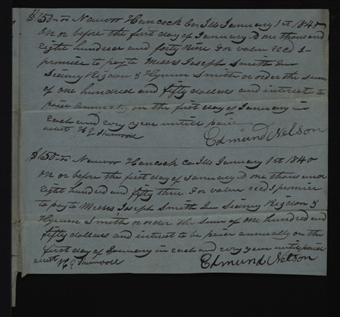 $150.00 Nauvoo Hancock Co Ills January 1st 1840
on or before the first day of January D one thousand
eight hundred and forty nine for value recd I
promise to pay to Messrs Joseph Smith Sen
Sidney Rigdon & Hyrum Smith or order the sum
of one hundred and fifty dollars and interest to
paid annually on the first day of January in
each and every year untill paid
Edmund Nelson
$150.00 Nauvoo Hancock Co Ills January 1st 1840
on or before the first day of January D one thousand
eight hundred and fifty three for value recd I promise
to pay to Messrs Joseph Smith Sen Sidney Rigdon &
Hyrum Smith or order the sum of one hundred and
fifty dollars and interest to be paid annually on the
first day of January in each and every year untill paid
Edmund Nelson